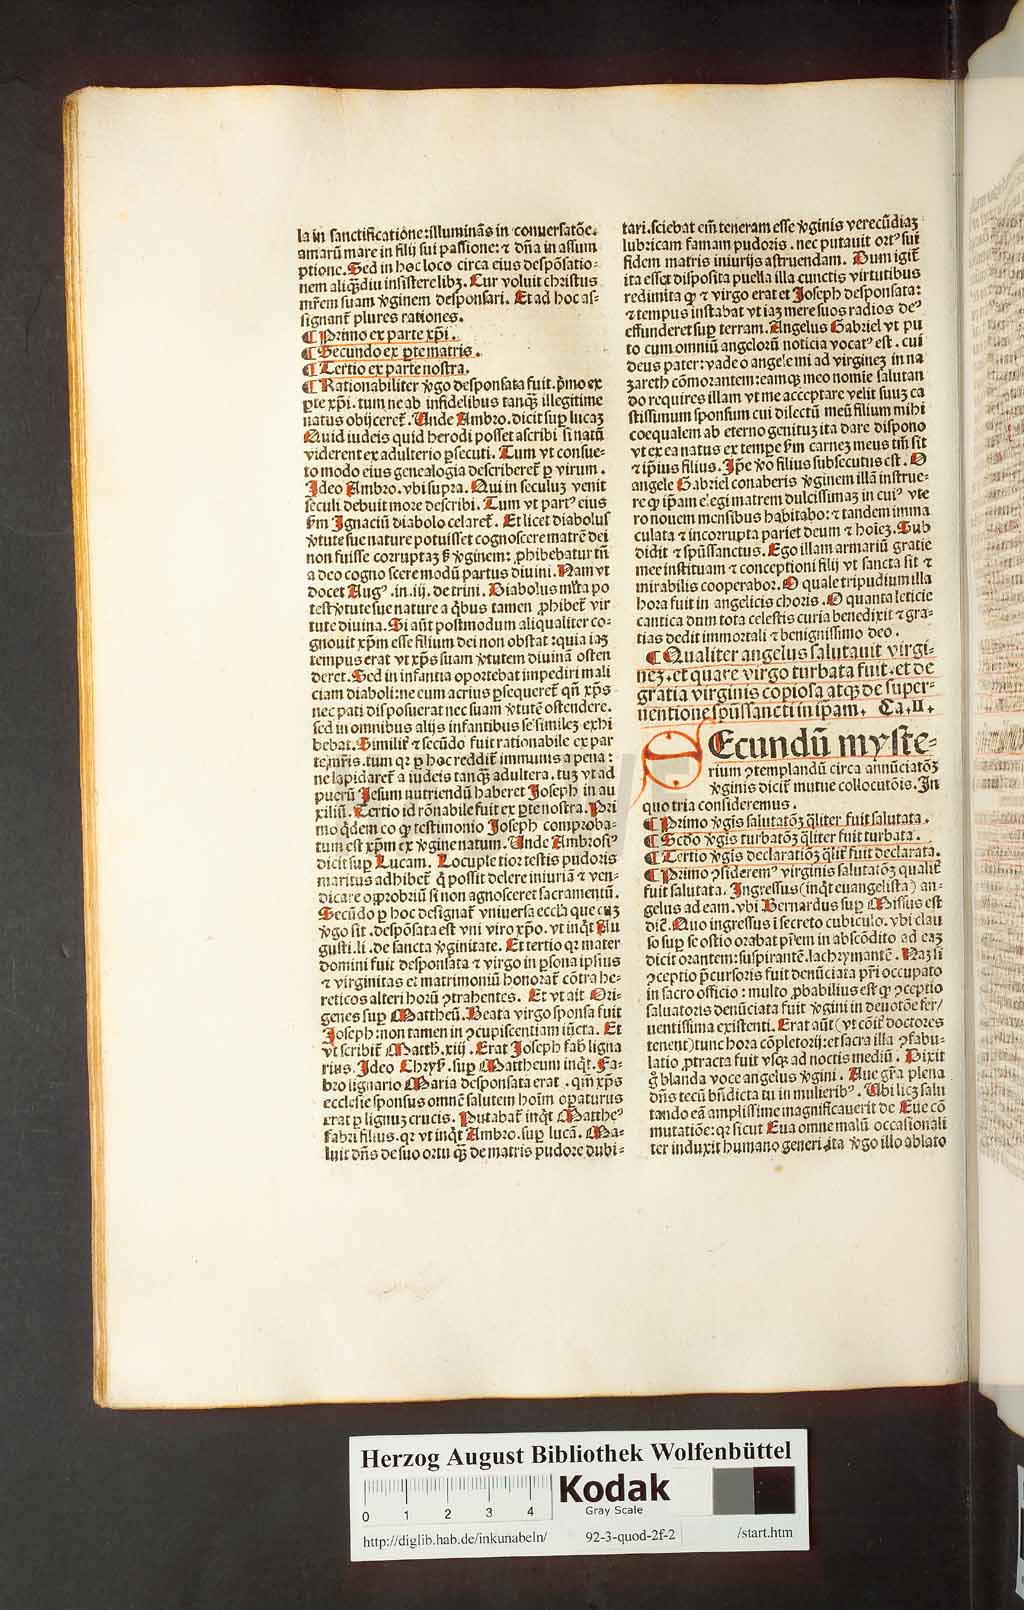 la in sanctificatiōne: illuminās in conuersatōe.
amarū mare in filij sui passione: ⁊ dn̄a in assum
ptione. Sed in hoc loco circa eius despōsatio⸗
nem aliq̄diu insistere libꝫ. Cur voluit christus
mr̄em suam v̓ginem desponsari. Et ad hoc as⸗
signant̄ plures rationes.
¶ Primo ex parte xp̄i.
¶ Secundo ex ꝑte matris.
¶ Tertio ex parte nostra.
¶ Rationabiliter v̓go desponsata fuit. p̄mo ex
ꝑte xp̄i. tum ne ab infidelibus tanqꝫ illegitime
natus obijceret̄. Unde Ambro. dicit suꝑ lucaꝫ
Quid iudeis quid herodi posset ascribi si natū
viderent ex adulterio ꝑsecuti. Tum vt consue⸗
to modo eius genealogia describeret̄ ꝑ virum.
Ideo Ambro. vbi supra. Qui in seculuꝫ venit
seculi debuit more describi. Tum vt partꝰ eius
ẜm Ignaciū diabolo celaret̄. Et licet diabolus
v̓tute sue nature potuisset cognoscere matrē dei
non fuisse corruptaꝫ ß v̓ginem: ꝓhibebatur tn̄
a deo cogno scere modū partus diuini. Nam vt
docet Augꝰ. in .iij. de trini. Diabolus ml̓ta po
test v̓tute sue nature a q̄bus tamen ꝓhibet̄ vir
tute diuina. Si aūt postmodum aliqualiter co⸗
gnouit xp̄m esse filium dei non obstat: quia iaꝫ
tempus erat vt xp̄s suam v̓tutem diuinā osten
deret. Sed in infantia oportebat impediri mali
ciam diaboli: ne eum acrius ꝑsequeret̄ qn̄ xp̄s
nec pati disposuerat nec suam v̓tutē ostendere.
sed in omnibus alijs infantibus se simileꝫ exhi
bebat. Similit̄ ⁊ secūdo fuit rationabile ex par
te mr̄is. tum qꝛ ꝑ hoc reddit̄ immunis a pena:
ne lapidaret̄ a iudeis tanqꝫ adultera. tuꝫ vt ad
puerū Jesum nutriendū haberet Joseph in au
xiliū. Tertio id rōnabile fuit ex ꝑte nostra. Pri
mo q̄dem eo ꝙ testimonio Joseph comproba⸗
tum est xp̄m ex v̓gine natum. Unde Ambrosiꝰ
dicit suꝑ Lucam. Locupletior testis pudoris
maritus adhibet̄ q̄ possit delere iniuriā ⁊ ven⸗
dicare opprobriū si non agnosceret sacramentū.
Secūdo ꝑ hoc designat̄ vniuersa eccl̄ia que cuꝫ
v̓go sit. despōsata est vni viro xp̄o. vt inq̄t Au
gusti. li. de sancta v̓ginitate. Et tertio qꝛ mater
domini fuit desponsata ⁊ virgo in ꝑsona ipsius
⁊ virginitas et matrimoniū honorat̄ cōtra he⸗
reticos alteri horū ꝯtrahentes. Et vt ait Ori⸗
genes suꝑ Mattheū. Beata virgo sponsa fuit
Joseph: non tamen in ꝯcupiscentiam iūcta. Et
vt scribit̄ Matth. xiij. Erat Joseph fab̓ ligna
rius. Ideo Chryß. suꝑ Mattheum inq̄t. Fa⸗
bro lignario Maria desponsata erat. qm̄ xp̄s
ecclesie sponsus omnē salutem hoīm oꝑaturus
erat ꝑ lignuꝫ crucis. Putabat̄ inq̄t Mattheꝰ
fabri filius. qꝛ vt inq̄t Ambro. suꝑ lucā. Ma⸗
luit dn̄s de suo ortu qꝫ de matris pudore dubi⸗
tari. sciebat em̄ teneram esse v̓ginis verecūdiaꝫ
lubricam famam pudoris. nec putauit ortꝰ sui
fidem matris iniurijs astruendam. Dum igit̄
ita esset disposita puella illa cunctis virtutibus
redimita ꝙ ⁊ virgo erat et Joseph desponsata:
⁊ tempus instabat vt iaꝫ mere suos radios deꝰ
effunderet suꝑ terram. Angelus Gabriel vt pu
to cum omniū angelorū noticia vocatꝰ est. cui
deus pater: vade o angele mi ad virgineꝫ in na
zareth cōmorantem: eamqꝫ meo nomīe salutan
do requires illam vt me acceptare velit suuꝫ ca
stissimum sponsum cui dilectū meū filium mihi
coequalem ab eterno genituꝫ ita dare dispono
vt ex ea natus ex tempe ẜm carneꝫ meus tm̄ sit
⁊ ip̄ius filius. Ip̄e v̓o filius subsecutus est. O
angele Gabriel conaberis v̓ginem illā instrue⸗
re ꝙ ip̄am elegi matrem dulcissimaꝫ in cuiꝰ vte
ro nouem mensibus habitabo: ⁊ tandem imma
culata ⁊ incorrupta pariet deum ⁊ hoīeꝫ. Sub
didit ⁊ spūssanctus. Ego illam armariū gratie
mee instituam ⁊ conceptioni filij vt sancta sit ⁊
mirabilis cooperabor. O quale tripudium illa
hora fuit in angelicis choris. O quanta leticie
cantica dum tota celestis curia benedixit ⁊ gra⸗
tias dedit immortali ⁊ benignissimo deo.
¶ Qualiter angelus salutauit virgi⸗
neꝫ. et quare virgo turbata fuit. et de
gratia virginis copiosa atqꝫ de super⸗
uentione spūssancti in ipam. Ca. II.
SEcundū myste⸗
rium ꝯtemplandū circa annūciatōꝫ
v̓ginis dicit̄ mutue collocutōis. In
quo tria consideremus.
¶ Primo v̓gis salutatōꝫ q̄liter fuit salutata.
¶ Scd̄o v̓gis turbatōꝫ q̄liter fuit turbata.
¶ Tertio v̓gis declaratiōꝫ q̄lit̄ fuit declarata.
¶ Primo ꝯsideremꝰ virginis salutatōꝫ qualit̄
fuit salutata. Ingressus (inq̄t euangelista) an⸗
gelus ad eam. vbi Bernardus suꝑ Missus est
dic̄. Quo ingressus ī secreto cubiculo. vbi clau
so suꝑ se ostio orabat pr̄em in abscōdito ad eaꝫ
dicit orantem: suspirantē. lachrymantē. Naꝫ si
ꝯceptio p̄cursoris fuit denūciata pr̄i occupato
in sacro officio: multo ꝓbabilius est ꝙ ꝯceptio
saluatoris denūciata fuit v̓gini in deuotōe fer/
uentissima existenti. Erat aūt (vt cōit̄ doctores
tenent) tunc hora cōpletorij: et sacra illa ꝯfabu⸗
latio ꝓtracta fuit vsqꝫ ad noctis mediū. Dixit
g̊ blanda voce angelus v̓gini. Aue gr̄a plena
dn̄s tecū bn̄dicta tu in mulieribꝰ. Ubi licꝫ salu
tando eā amplissime magnificauerit de Eue cō
mutatiōe: qꝛ sicut Eua omne malū occasionali
ter induxit humano generi. ita v̓go illo ablato
Herzog August Bibliothek Wolfenbüttel
0 1 2 3 4
Kodak
Gray Scale
http://diglib.hab.de/inkunabeln/ 92-3-quod-2f-2 /start.htm